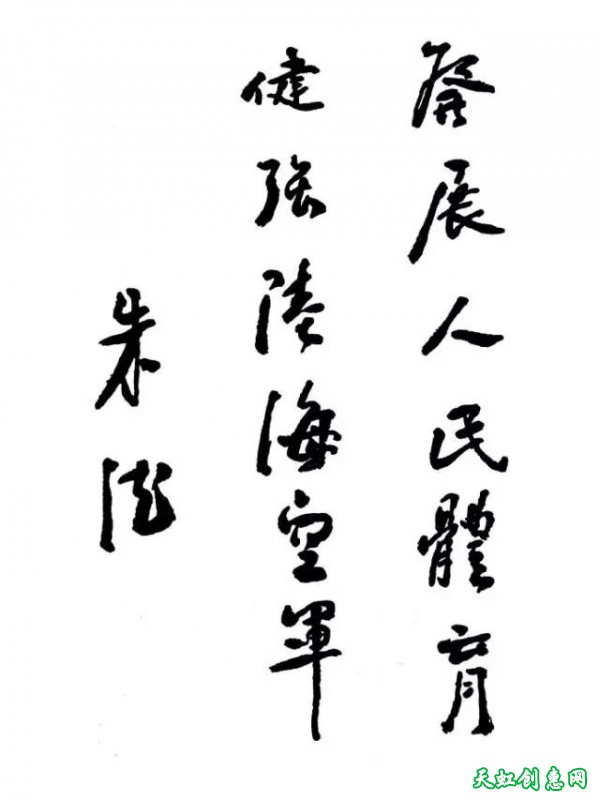 發展人民體育
健强陸海空軍
朱德
天虹创意网